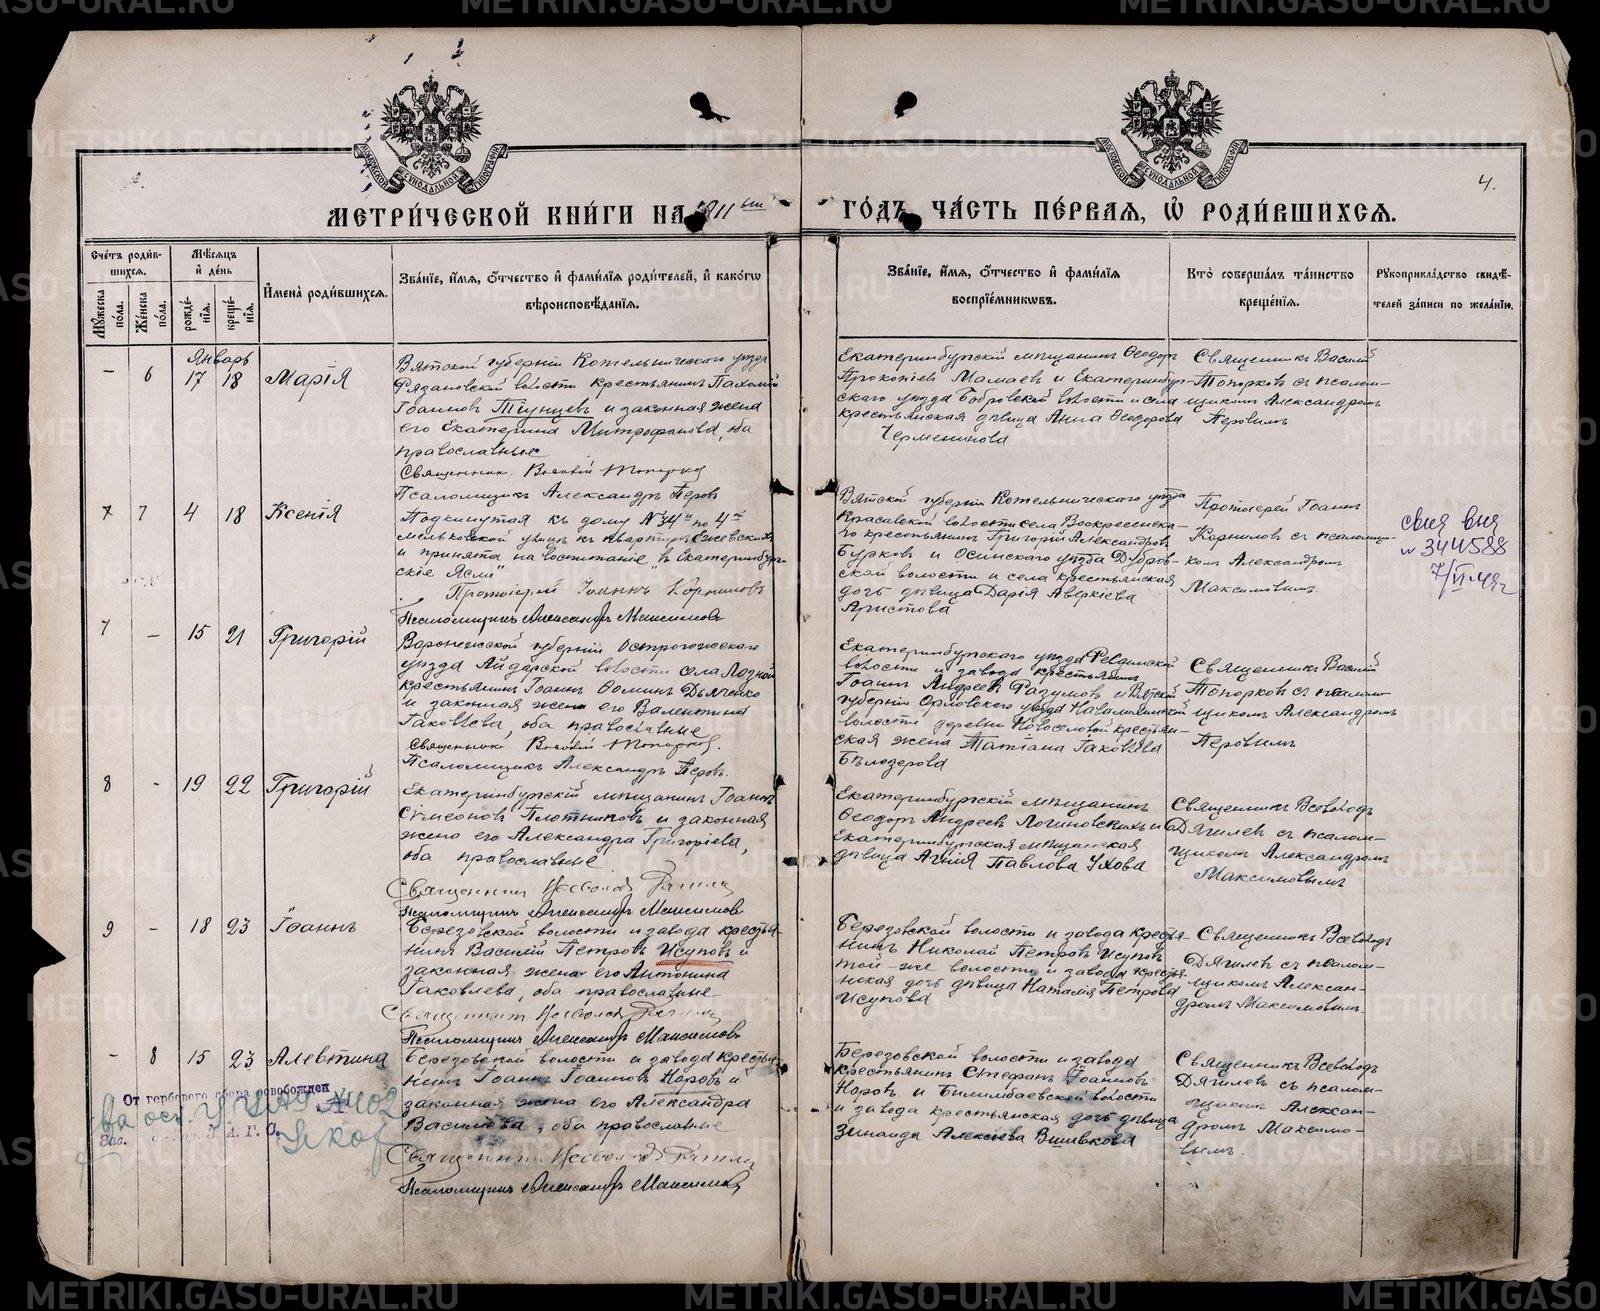 4.
МЕТРИ́ЧЕСКОЙ КНИ́ГИ НА 1911 ый
ГО́ДЪ, ЧА́СТЬ ПЕ́РВАЯ, Ѡ҆ РОДИ́ВШИХСЯ.
МОСКОВСКОЙ СѴНОДАЛЬНОЙ ТИПОГРАФІИ
МОСКОВСКОЙ СѴНОДАЛЬНОЙ ТИПОГРАФІИ
Сче́тъ роди́вшихся.
Му́жеска по́ла.
Же́нска по́ла.
Мѣ́сяцъ и҆ де́нь
рожде́нїя.
креще́нїя.
И҆мена̀ роди́вшихся.
Зва́нїе, и҆́мя, ѻ҆́тчество и҆ фами́лїя роди́телей, и҆ како́гѡ
вѣроисповѣ́данїя.
Зва́нїе, и҆́мя, ѻ҆́тчество и҆ фами́лїя
воспрїе́мникѡвъ.
Кто̀ соверша́лъ та́инство
креще́нїя.
Рꙋкоприкла́дство свидѣ́-
телей за́писи по жела́нїю.
Январь
- 6 17 18 Марія
Вятской губерніи Котельническаго уѣзда
Рязановской волости крестьянинъ Пахомій
Іоанновъ Тѣунцевъ и законная жена
его Екатерина Митрофанова, оба
православные
Священник Василій Топорков
Псаломщикъ Александръ Перовъ
Екатеринбургскій мѣщанинъ Ѳеодоръ
Прокопіев Мамаев и Екатеринбург-
скаго уѣзда Бобровской волости и села
крестьянская дѣвица Анна Ѳеодорова
Черменинова
Священникъ Василій
Топорков съ псалом-
щикомъ Александромъ
Перовымъ
7 7 4 18 Ксенія
Подкинутая къ дому №74й по 4й
Мельковской улицѣ къ квартирѣ Ежевскихъ
и принята на воспитаніе „въ Екатеринбург-
скіе Ясли"
Протоіерей Іоаннъ Корниловъ
Псаломщикъ Александръ Максимовъ
Вятской губерніи Котельническаго уѣзда
Красавской волости села Воскресенска-
го крестьянинъ Григорій Александровъ
Бурков и Осинскаго уѣзда Дубров-
ской волости и села крестьянская
дочь дѣвица Дарія Аверкіева
Аристова
Протоіерей Іоаннъ
Корнилов съ псаломщи-
комъ Александромъ
Максимовымъ
344588
7/VI 49г
7 - 15 21 Григорій
Воронежской губерніи Острогожскаго
уѣзда Айдарской волости села Лозной
крестьянинъ Іоаннъ Ѳоминъ Дьяченко
и законная жена его Валентина
Іаковлева, оба православные
Священник Василій Топорков.
Псаломщикъ Александръ Перовъ.
Екатеринбургскаго уѣзда Ревдинской
волости и завода крестьянинъ
Іоаннъ Андреев Разумов и Вятской
губерніи Орловскаго уѣзда Навалихинской
волости деревни Новоселовой крестьян-
ская жена Татіана Іаковлева
Бѣлозерова
Священникъ Василій
Топорков съ псалом-
щикомъ Александромъ
Перовымъ
8 - 19 22 Григорій
Екатеринбургскій мѣщанинъ Іоаннъ
Сѵмеонов Плотников и законная
жена его Александра Григоріева,
оба православные
Священник Всеволод Дягилев
Псаломщикъ Александръ Максимов
Екатеринбургскій мѣщанинъ
Ѳеодоръ Андреев Логиновскихъ и
Екатеринбургская мѣщанская
дѣвица Агнія Павлова Ухова
Священникъ Всеволодъ
Дягилев съ псалом-
щикомъ Александромъ
Максимовымъ
9 - 18 23 Іоаннъ
Березовской волости и завода крестья-
нинъ Василій Петровъ Исуповъ и
законная жена его Антонина
Іаковлева, оба православные
Священник Всеволод Дягилев
Псаломщикъ Александръ Максимовъ
Березовской волости и завода крестья-
нинъ Николай Петровъ Исупов и
той-же волости и завода крестья-
нская дочь дѣвица Наталія Петрова
Исупова
Священникъ Всеволодъ
Дягилев съ псалом-
щикомъ Алексан-
дромъ Максимовымъ.
- 8 15 23 Алевтина
Березовской волости и завода крестья-
нинъ Іоаннъ Іоаннов Норовъ и
законная жена его Александра
Василіева, оба православные
Священник Всеволод Дягилев
Псаломщикъ Александръ Максимов
Березовской волости и завода
крестьянинъ Стефанъ Іоаннов
Норов и Билимбаевской волости
и завода крестьянская дочь дѣвица
Зинаида Алексіева Вшивкова
Священникъ Всеволодъ
Дягилев съ псалом-
щикомъ Алексан-
дромъ Максимо-
вымъ.
От гербового сбора освобожден
З. А. Г. С.
METRIKI.GASO-URAL.RU